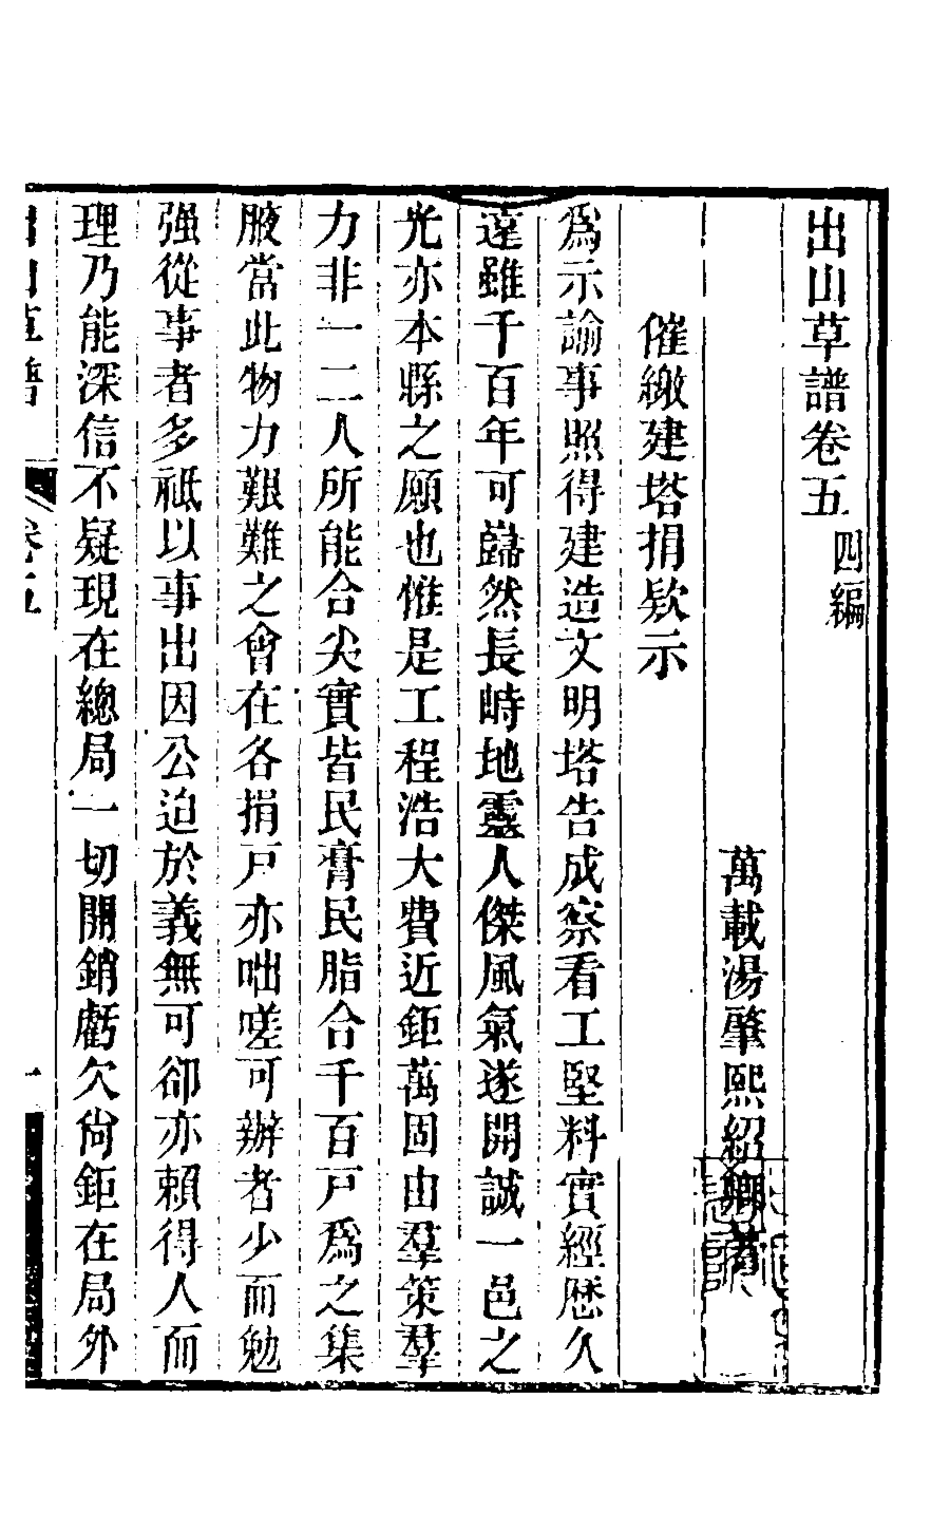 出山草譜卷五 四編
萬載湯肇熙紹卿著
催繳建塔捐欵示
爲示諭事照得建造文明塔告成察看工堅料實經歴久
遠雖千百年可巋然長峙地靈人傑風氣遂開誠一邑之
光亦本縣之願也惟是工程浩大費近鉅萬固由羣策羣
力非一二人所能合尖實皆民膏民脂合千百戸爲之集
腋當此物力艱難之會在各捐戸亦咄嗟可辦者少而勉
强從事者多祗以事出因公迫於義無可卻亦賴得人而
理乃能深信不疑現在總局一切開銷虧欠尙鉅在局外
出山草譜 卷五 一